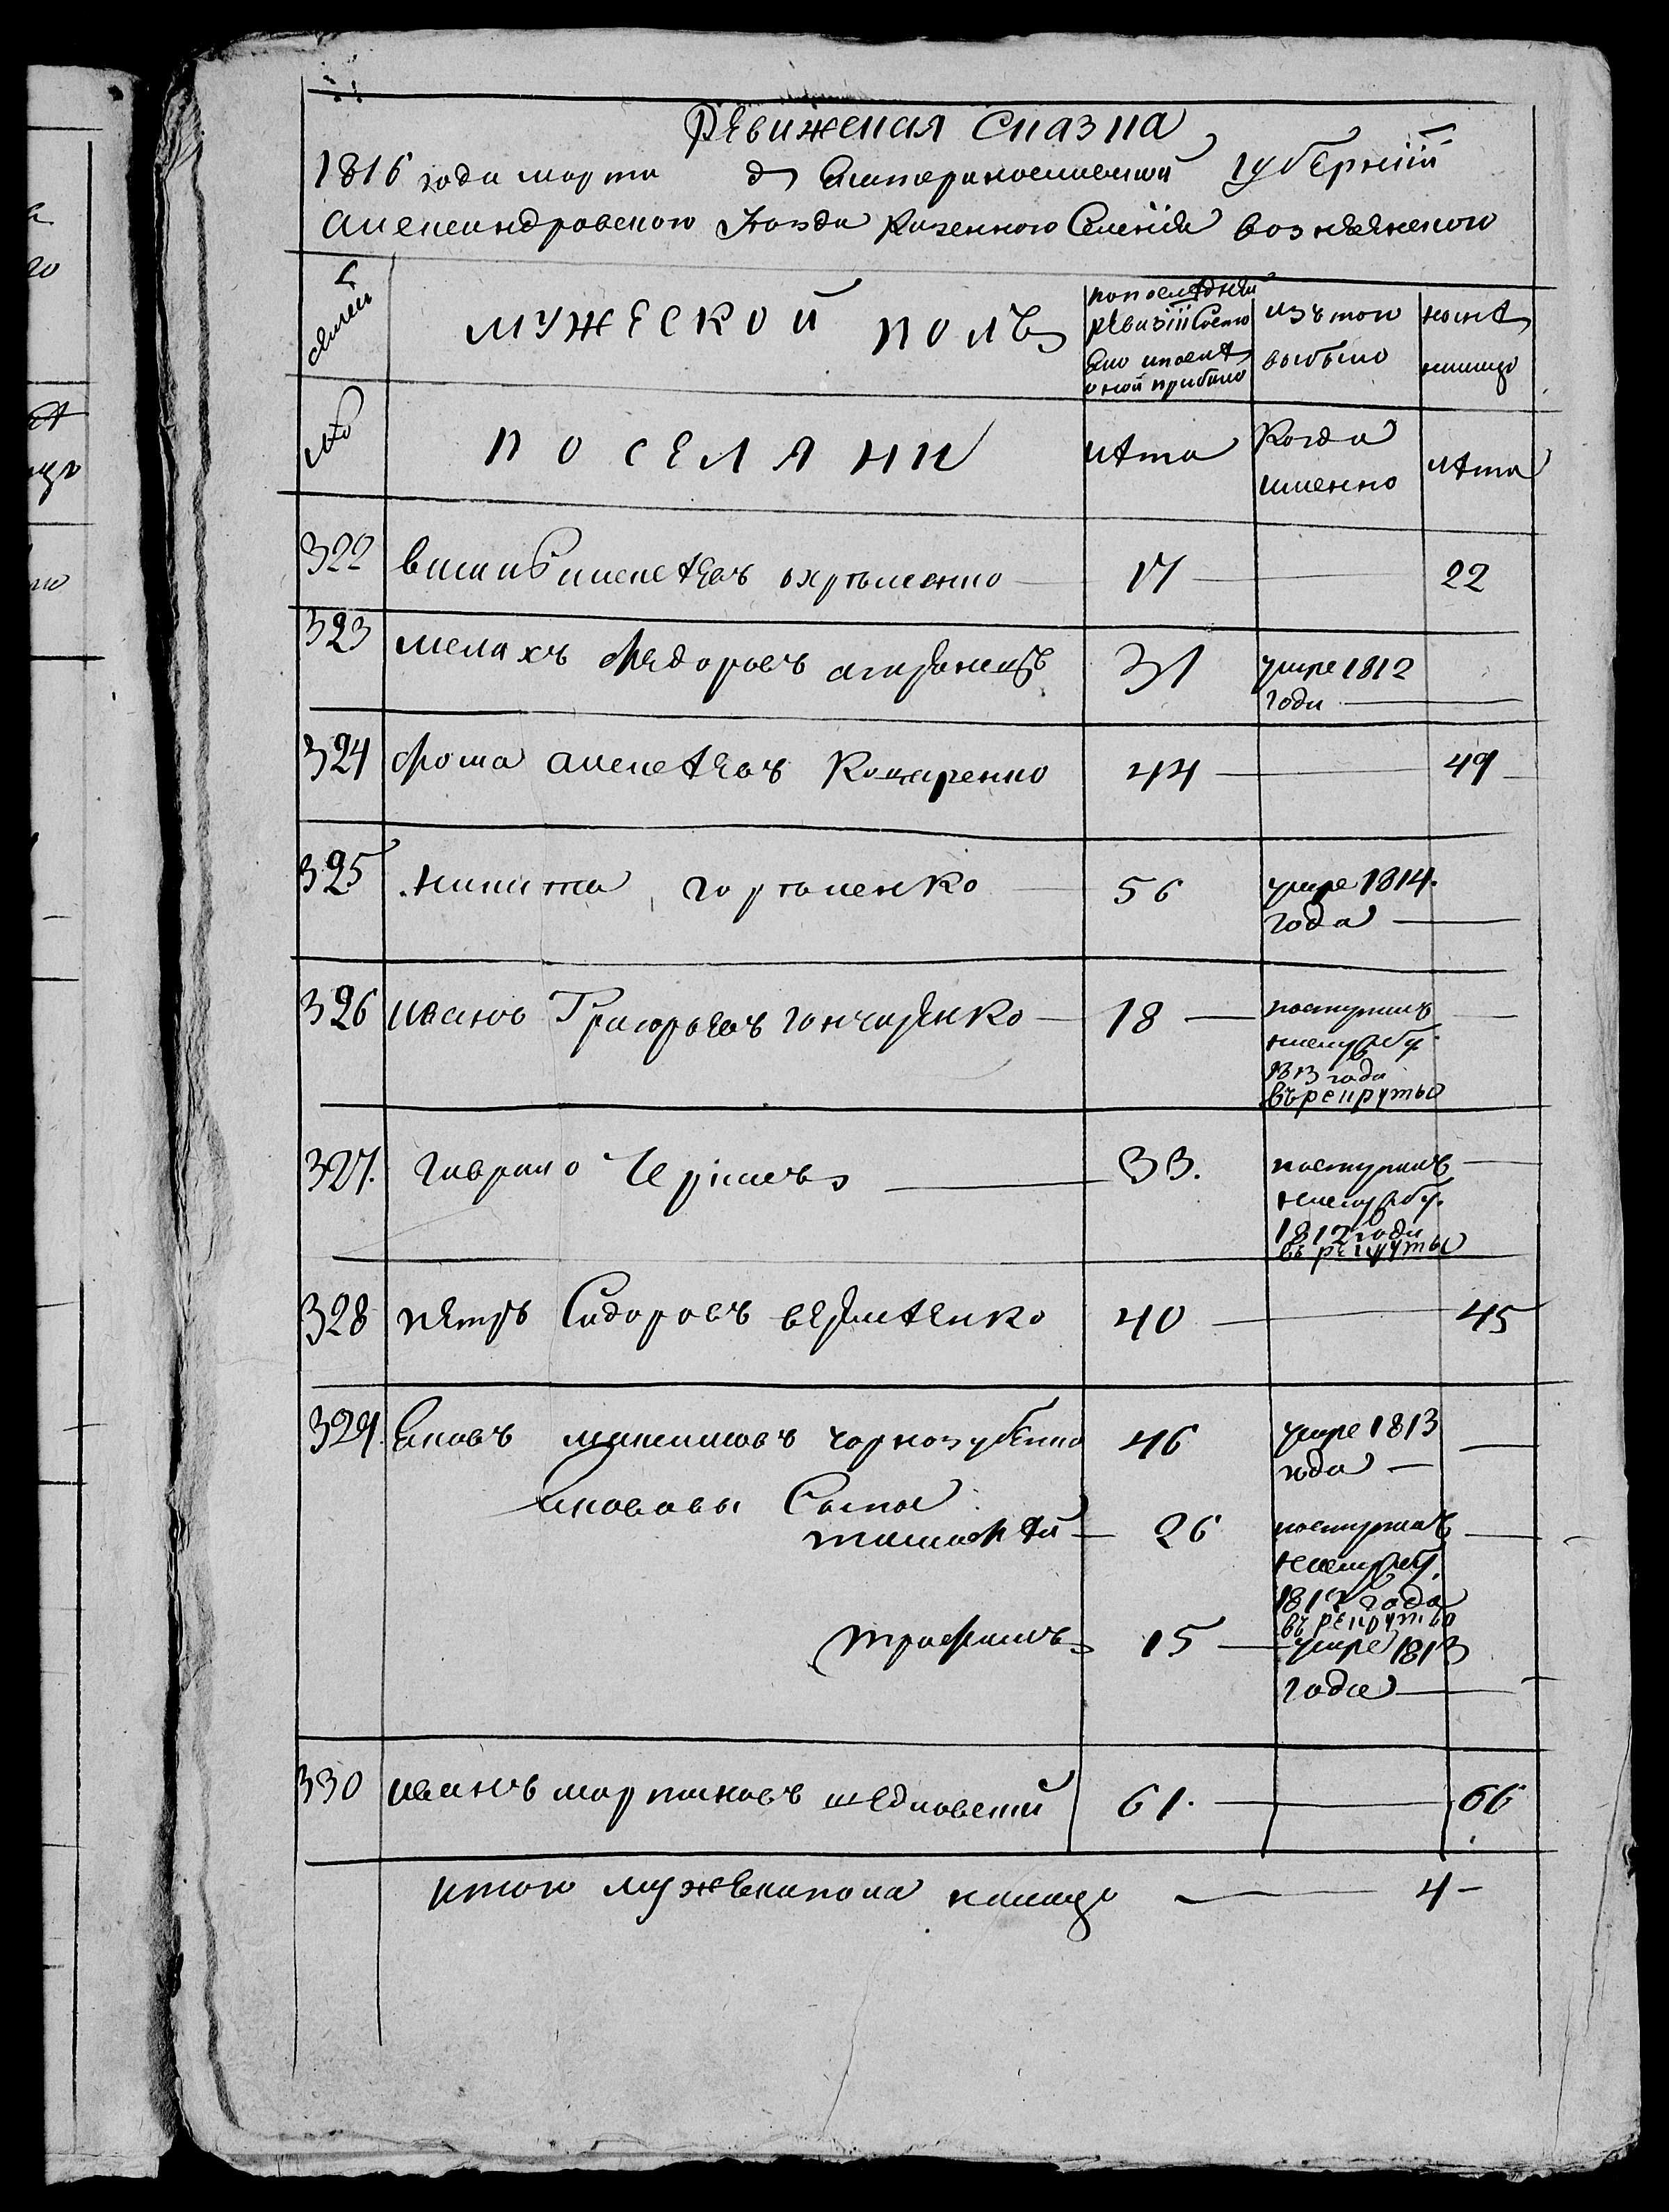 Ревижская Сказка
1816 года марта д Екатеринославской губернии
Александровского уезда Казенного Селения вознесенского
семей
мужеской полъ
попоследней
ревизии состо
яло ипосле
оной прибыло
изътого
выбыло
ныне
налицо
№
поселяни
лета
Когда
именно
лета
322 алексеевъ 17 22
323 малахъ федоровъ 31 умре 1812
года
324 фома алексеевъ 44 49
325 никита горпаченко 56 умре 1814.
года
326 иванъ Григорьевъ гончаренко 18 поступилъ
наслужбу
1813 года
въ рекруты
327. гаврило 33. поступилъ
наслужбу.
1812 года
въ рекруты
328 петръ Сидоровъ 40 45
329. яковъ максимовъ чорнозубенко 46 умре 1813
года
яковавы Сына
тимофей 26 поступилъ
наслужбу
1812 года
въ рекруты
трофимъ 15 умре 1813
года
330 иванъ мартиновъ шедловский 61. 66
итого мужескапола налицо 4